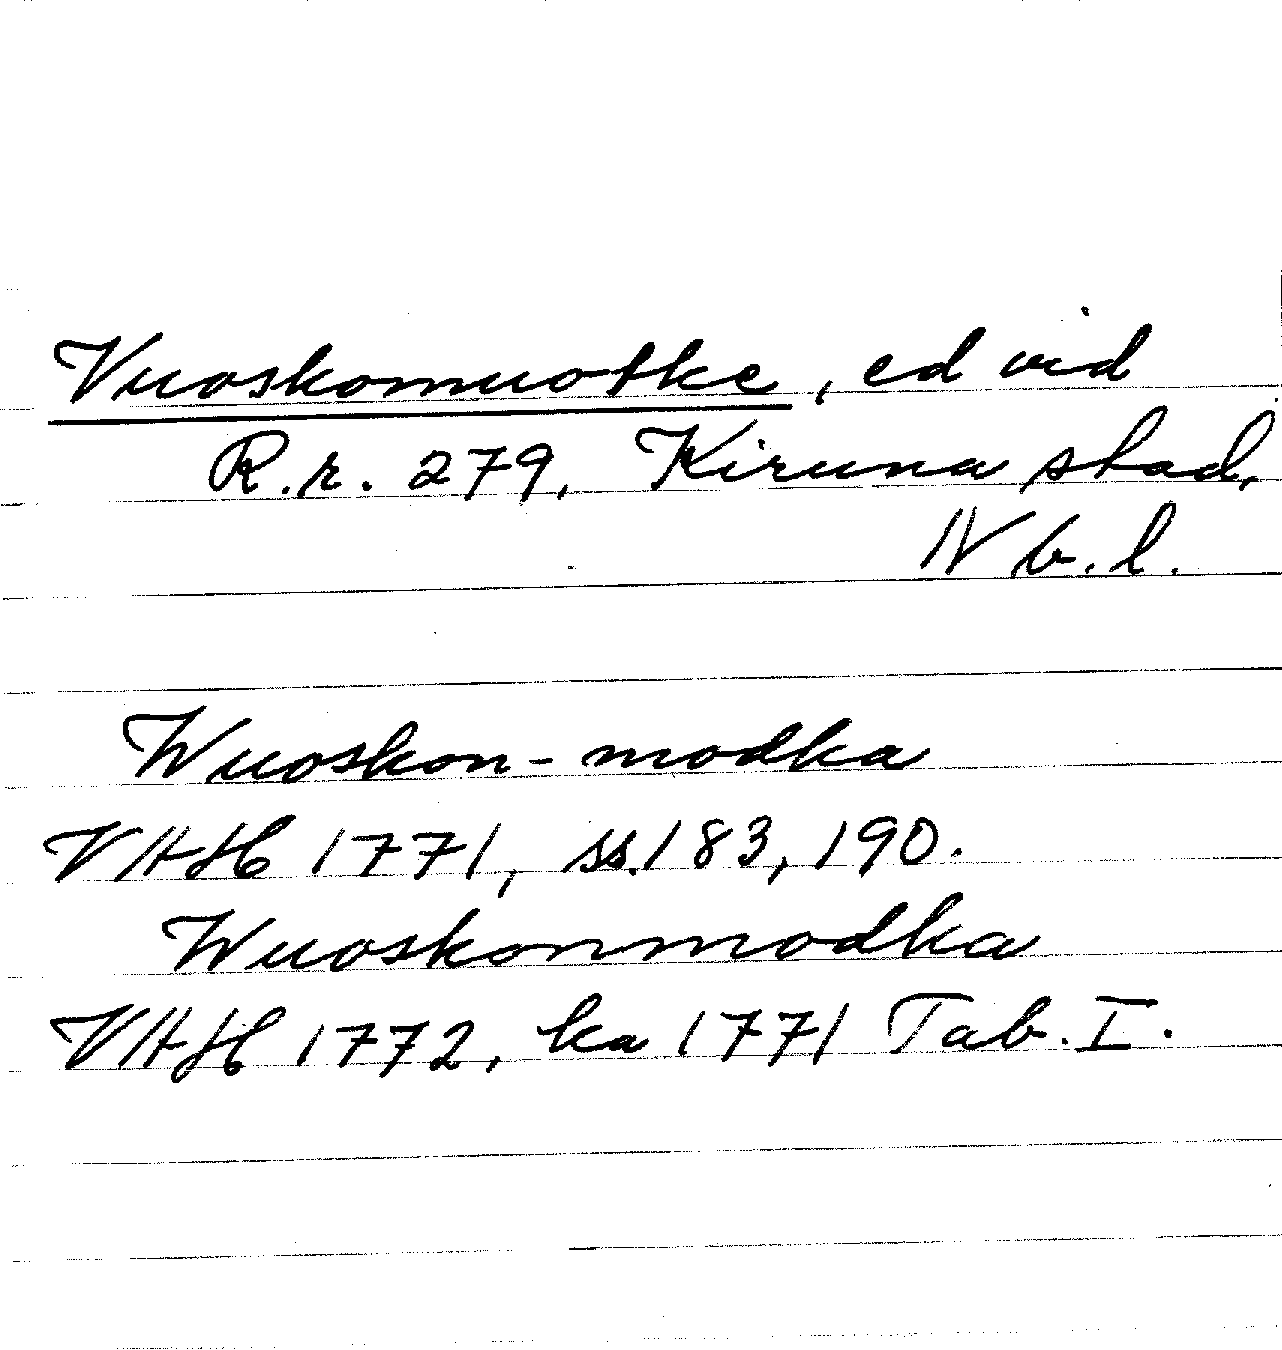 Vuoskomuotke, ed vid
R.r. 279, Kiruna stad,
Nb.l.
Wuoskon-modka
VHAH 1771, ss. 183, 190.
Wuoskonmodka
VHAH 1772, ka 1771 Tab. I.